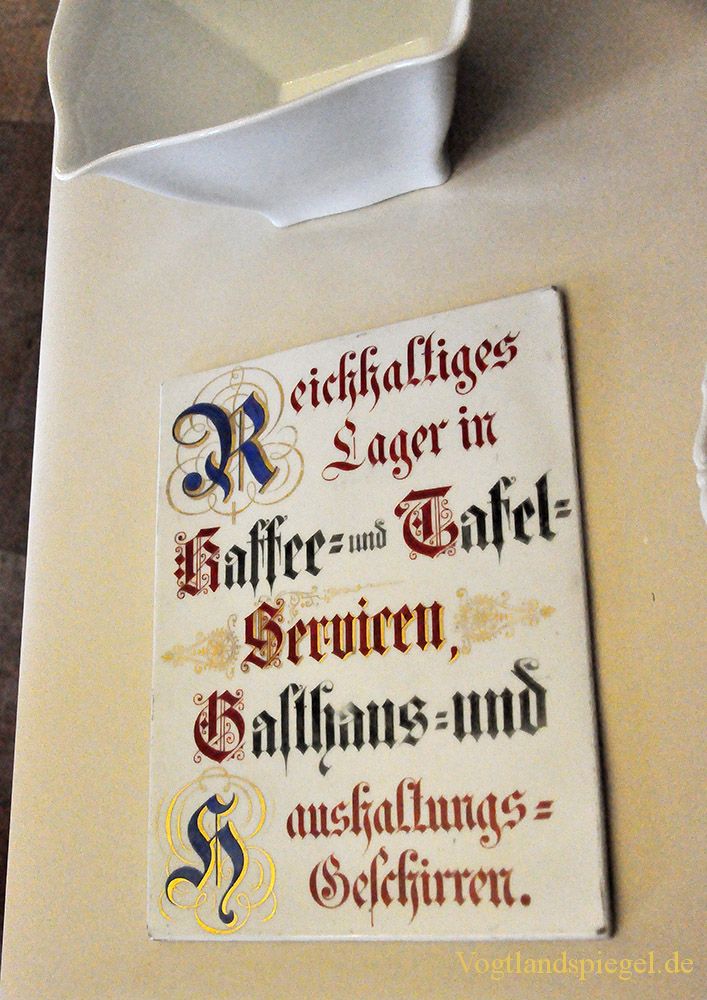 Reichhaltiges
Lager in
Kaffee= und Tafel=
Servicen,
Gasthaus= und
Haushaltungs=
Geschirren.
Vogtlandspiegel.de